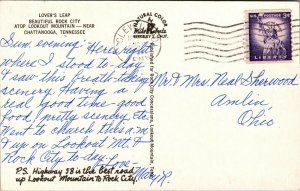 LOVER'S LEAP
BEAUTIFUL ROCK CITY
ATOP LOOKOUT MOUNTAIN — NEAR
CHATTANOOGA, TENNESSEE
Sun, evening. Here's right
where I stood to-day
& saw this breath-taking
scenery. Having a
real good time - good
food, pretty scenery, etc.
Went to church this a.m.
& up on Lookout Mt. &
Rock City to-day.
Love -
Mary R.
P.S. Highway 58 is the best road
up Lookout Mountain to Rock City.
NATURAL COLOR
Mike Roberts
BERKELEY 2, CALIF.
3¢
LIBERTY
Mr & Mrs. Neal Sherwood
Amlin,
Ohio